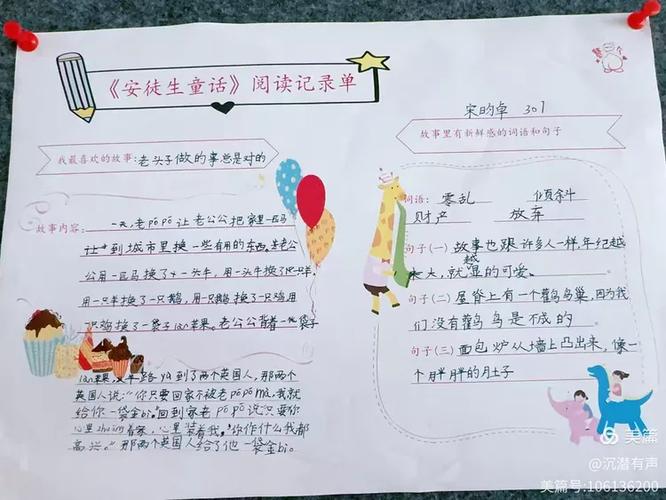 《安徒生童话》阅读记录单
宋昀卓 301
我最喜欢的故事:老头子做的事总是对的
故事内容:一天,老pópo让老公公把家里一匹马
让 到城市里换一些有用的东西,老公
公用一匹马换了一头牛,用一头牛换了一只羊,
用一只羊换了一只鹅,用一只鹅换了一只鸡,用
一只鸡换了一袋子lan苹果。老公公背着一袋子
lan苹果,
到了两个英国人,那两个
英国人说:“你只要回家不被老pópo mà,我就
给你一袋金bì。”回到家老pópo说:“只要你
心里 着家,心里装着我。你作什么我都
高兴。”那两个英国人给了他一袋金bì.
故事里有新鲜感的词语和句子
词语: 零乱 倾斜
财产 放弃
句子(一)故事也跟许多人一样,年纪越
大,就越的可爱。
句子(二)屋脊上有一个鹳鸟巢,因为我
们没有鹳鸟是不成的
句子(三)面包炉从墙上凸出来,像一
个胖胖的肚子
美篇
@沉潜有声
美篇号:106136200